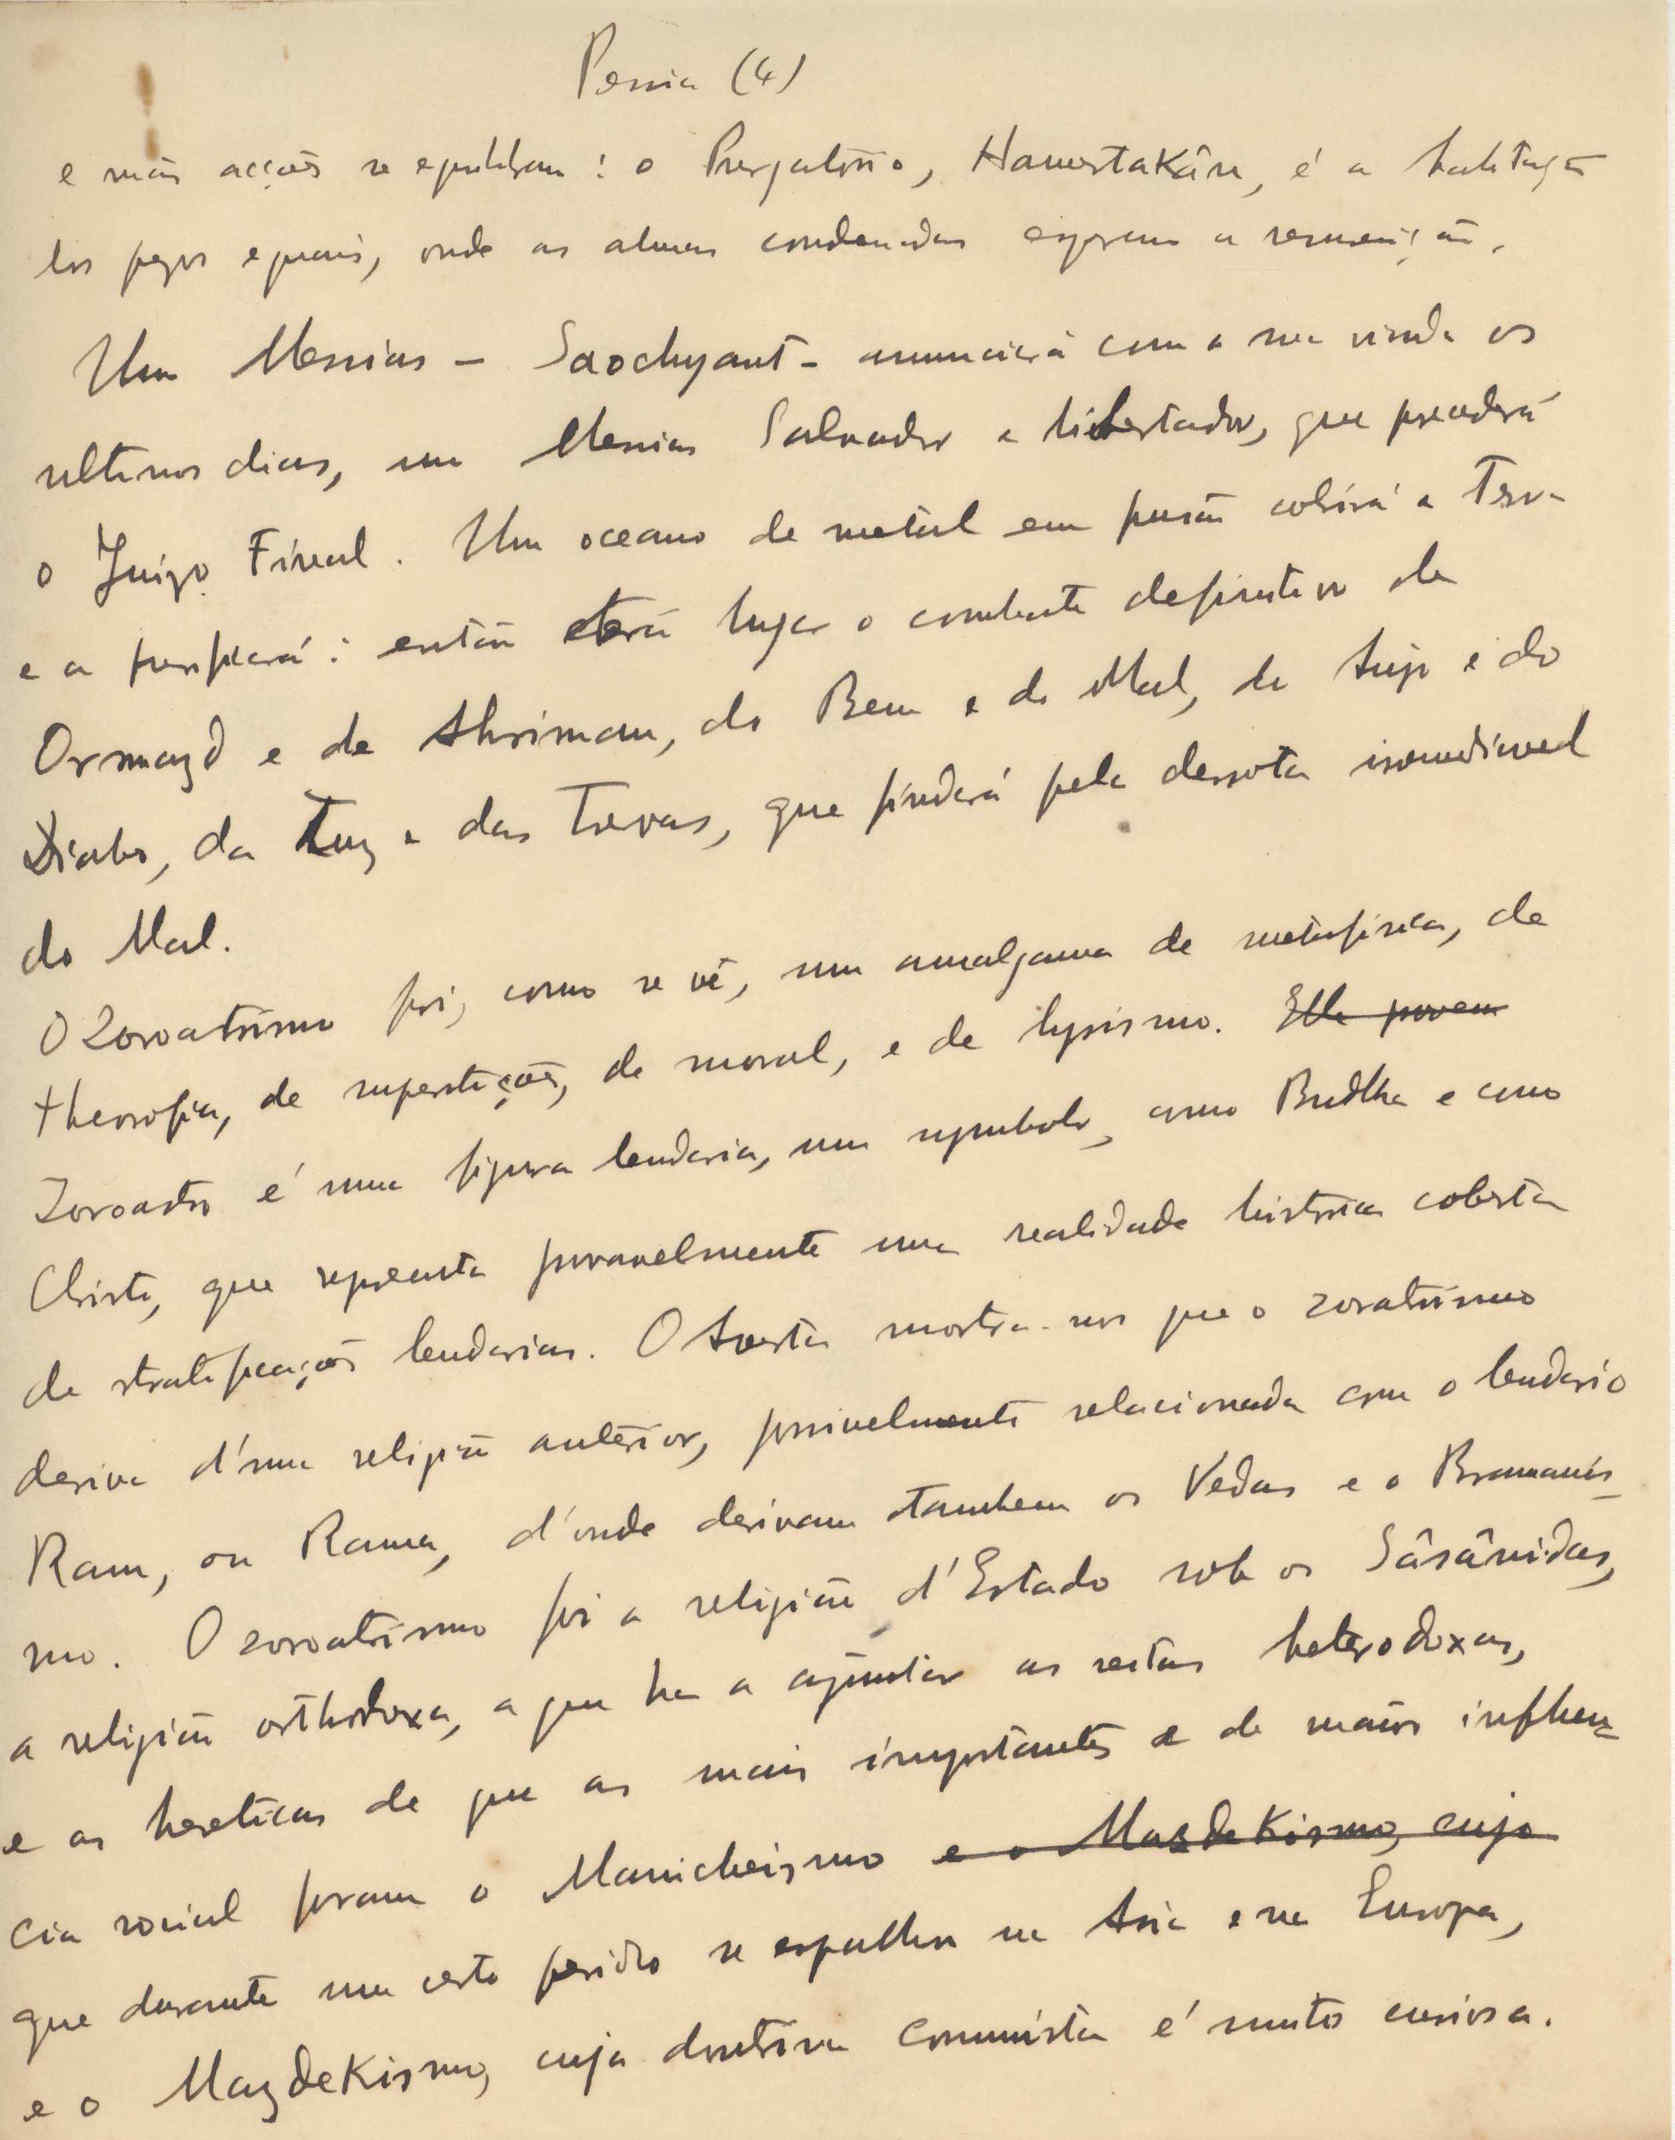 Persia (4)
e más acções se equilibram: o Purgatorio, Hamestakân, é a habitação
dos pezos eguaes, onde as almas condenadas esperam a remissão.
Um Messias – Saochyant – anunciará com a sua vinda os
ultimos dias, um Messias Salvador e libertador, que precederá
o Juizo Final. Um oceano de metal em fusão cobrirá a Terra
e a purificará: então terá lugar o combate definitivo de
Ormazd e de Ahriman, do Bem e do Mal, do Anjo e do
Diabo, da Luz e das Trevas, que findará pela derrota irremediavel
do Mal.
O Zoroatrismo foi, como se vê, um amalgama de metafisica, de
theosofia, de superstições, de moral, e de lyrismo. Elle provem
Zoroastro é uma figura lendaria, um symbolo, como Budha e como
Christo, que representa provavelmente uma realidade historica coberta
de stratificações lendarias. O Avesta mostra-nos que o zoratrismo
deriva d'uma religião anterior, possivelmente relacionada com o lendario
Ram, ou Rama, d'onde derivam tambem os Vedas e o Bramanis-
mo. O zoroatrismo foi a religião d'Estado sob os Sâsânidas,
a religião orthodoxa, a que ha a ajuntar as seitas heterodoxas,
e as hereticas de que as mais importantes e de maior influen-
cia social foram o Manicheismo e o Mazdekismo, cuja
que durante um certo periodo se espalhou na Asia e na Europa,
e o Mazdekismo, cuja doutrina comunista é muito curiosa.